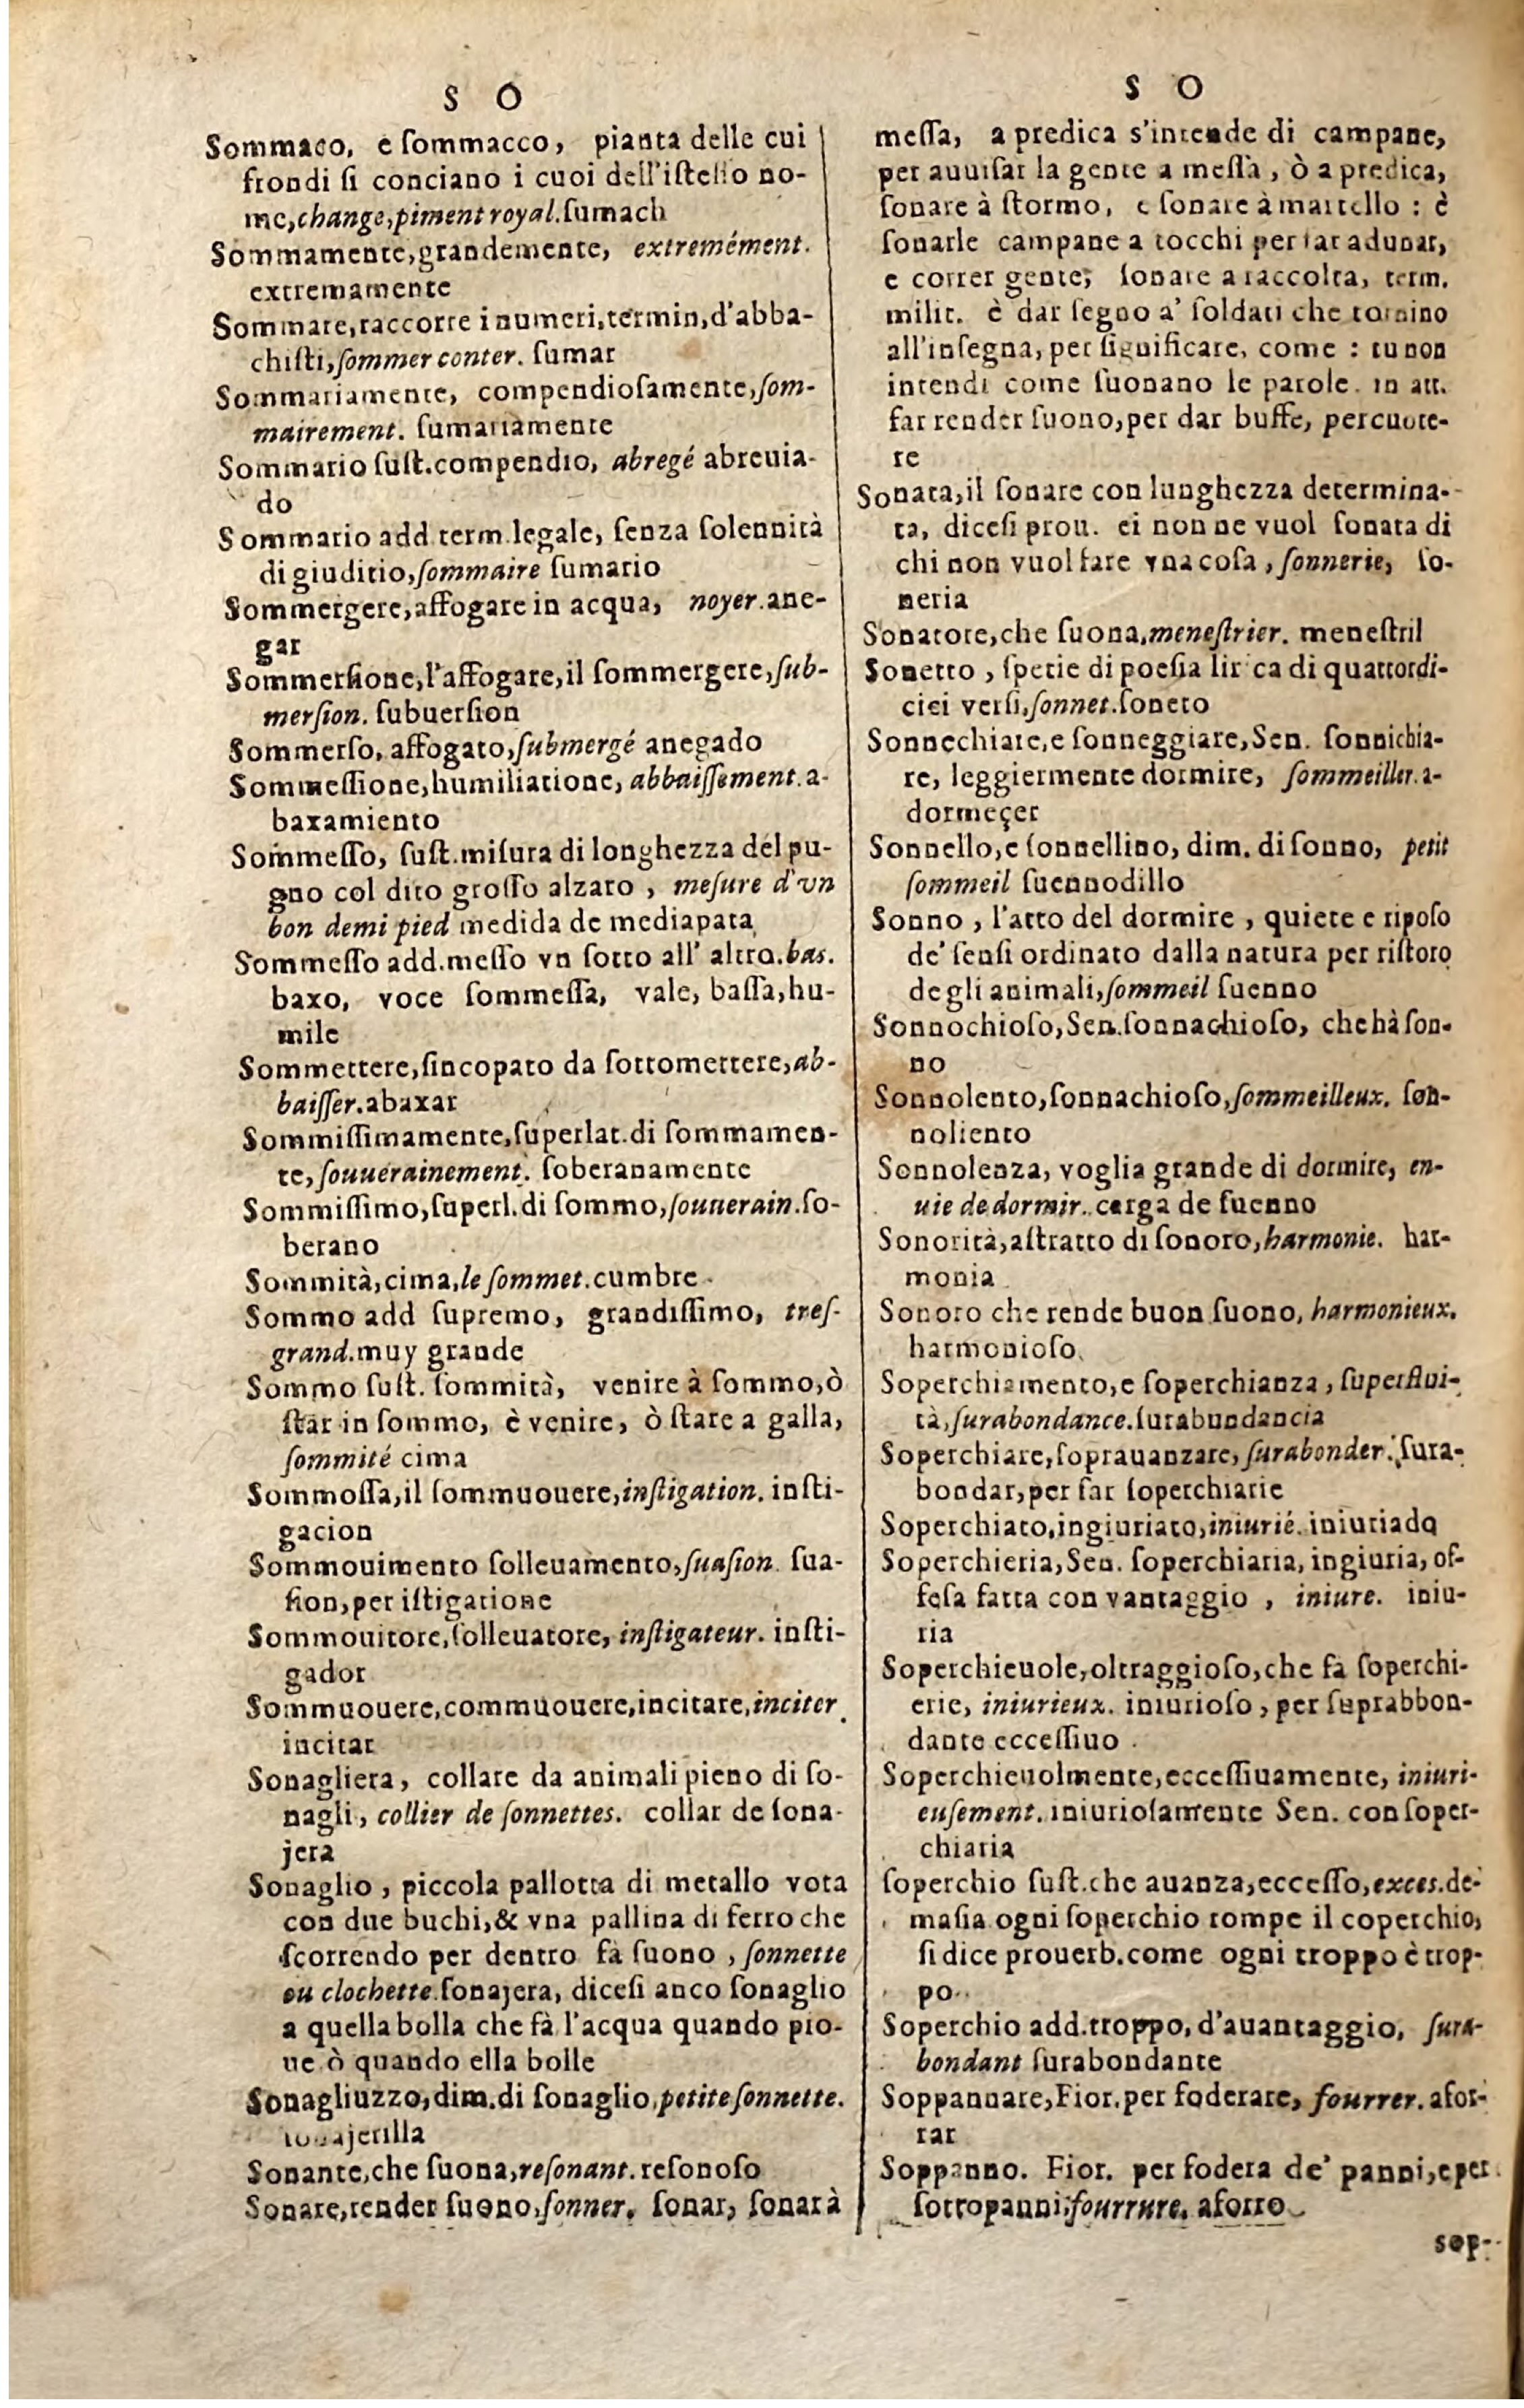 S O
Sommaco, e ſommacco, pianta delle cui
frondi ſi conciano i cuoi dell'iſteſſo no-
me, change, piment royal. ſumach
Sommamente, grandemente, extremément.
extremamente
Sommare, raccorre i numeri, termin, d'abba-
chiſti, ſommer conter. ſumar
Sommariamente, compendioſamente, ſom-
mairement. ſumariamente
Sommario ſuſt. compendio, abregé abreuia-
do
Sommario add term. legale, ſenza ſolennità
di giuditio, ſommaire ſumario
Sommergere, affogare in acqua, noyer. ane-
gar
Sommerſione, l'affogare, il ſommergere, ſub-
merſion. ſubuerſion
Sommerſo, affogato, ſubmergé anegado
Sommeſſione, humiliatione, abbaiſſement. a-
baxamiento
Sommeſſo, ſuſt. miſura di longhezza del pu-
gno col dito groſſo alzato, meſure d'vn
bon demi pied medida de mediapata
Sommeſſo add. meſſo vn ſotto all' altro. bas.
baxo, voce ſommeſſa, vale, baſſa, hu-
mile
Sommettere, ſincopato da ſottomettere, ab-
baiſſer. abaxar
Sommiſſimamente, ſuperlat. di ſommamen-
te, ſouuerainement. ſoberanamente
Sommiſſimo, ſuperl. di ſommo, ſouuerain. ſo-
berano
Sommità, cima, le ſommet. cumbre
Sommo add ſupremo, grandiſſimo, treſ-
grand. muy grande
Sommo ſuſt. ſommità, venire à ſommo, ò
ſtar in ſommo, è venire, ò ſtare a galla,
ſommité cima
Sommoſſa, il ſommuouere, inſtigation. inſti-
gacion
Sommouimento ſolleuamento, ſuaſion. ſua-
ſion, per iſtigatione
Sommouitore, ſolleuatore, inſtigateur. inſti-
gador
Sommuouere, commuouere, incitare, inciter.
incitar
Sonagliera, collare da animali pieno di ſo-
nagli, collier de ſonnettes. collar de ſona-
jera
Sonaglio, piccola pallotta di metallo vota
con due buchi, & vna pallina di ferro che
ſcorrendo per dentro fà ſuono, ſonnette
ou clochette. ſonajera, diceſi anco ſonaglio
a quella bolla che fà l'acqua quando pio-
ue ò quando ella bolle
Sonagliuzzo, dim. di ſonaglio, petite ſonnette.
ſonajerilla
Sonante, che ſuona, reſonant. reſonoſo
Sonare, render ſuono, ſonner. ſonar, ſonar à
S O
meſſa, a predica s'intende di campane,
per auuiſar la gente a meſſa, ò a predica,
ſonare à ſtormo, e ſonare à martello : è
ſonarle campane a tocchi per far adunar,
e correr gente; ſonare a raccolta, term.
milit. è dar ſegno a' ſoldati che tornino
all'inſegna, per ſignificare, come : tu non
intendi come ſuonano le parole. in att.
far render ſuono, per dar buffe, percuote-
re
Sonata, il ſonare con lunghezza determina-
ta, diceſi prou. ei non ne vuol ſonata di
chi non vuol fare vna coſa, ſonnerie, ſo-
neria
Sonatore, che ſuona, meneſtrier. meneſtril
Sonetto, ſpetie di poeſia lirica di quattordi-
cici verſi, ſonnet. ſoneto
Sonnechiare, e ſonneggiare, Sen. ſonnichia-
re, leggiermente dormire, ſommeiller. a-
dormeçer
Sonnello, e ſonnellino, dim. di ſonno, petit
ſommeil ſuennodillo
Sonno, l'atto del dormire, quiete e ripoſo
de' ſenſi ordinato dalla natura per riſtoro
degli animali, ſommeil ſuenno
Sonnochioſo, Sen. ſonnachioſo, che hà ſon-
no
Sonnolento, ſonnachioſo, ſommeilleux. ſon-
noliento
Sonnolenza, voglia grande di dormire, en-
uie de dormir. carga de ſuenno
Sonorità, aſtratto di ſonoro, harmonie. har-
monia
Sonoro che rende buon ſuono, harmonieux.
harmonioſo
Soperchiamento, e ſoperchianza, ſuperflui-
tà, ſurabondance. ſurabundancia
Soperchiare, ſoprauanzare, ſurabonder. ſura-
bondar, per far ſoperchiarie
Soperchiato, ingiuriato, iniurié. iniuriado
Soperchieria, Sen. ſoperchiaria, ingiuria, of-
feſa fatta con vantaggio, iniure. iniu-
ria
Soperchieuole, oltraggioſo, che fà ſoperchi-
erie, iniurieux. iniurioſo, per ſuprabbon-
dante ecceſſiuo.
Soperchieuolmente, ecceſſiuamente, iniuri-
euſement. iniurioſamente Sen. con ſoper-
chiaria
ſoperchio ſuſt. che auanza, ecceſſo, exces. de-
maſia ogni ſoperchio rompe il coperchio,
ſi dice prouerb. come ogni troppo è trop-
po
Soperchio add. troppo, d'auantaggio, ſura-
bondant ſurabondante
Soppannare, Fior. per foderare, fourrer. afor-
rar
Soppanno. Fior. per fodera de' panni, e per
ſottopanni; fourrure. aforro
sop-